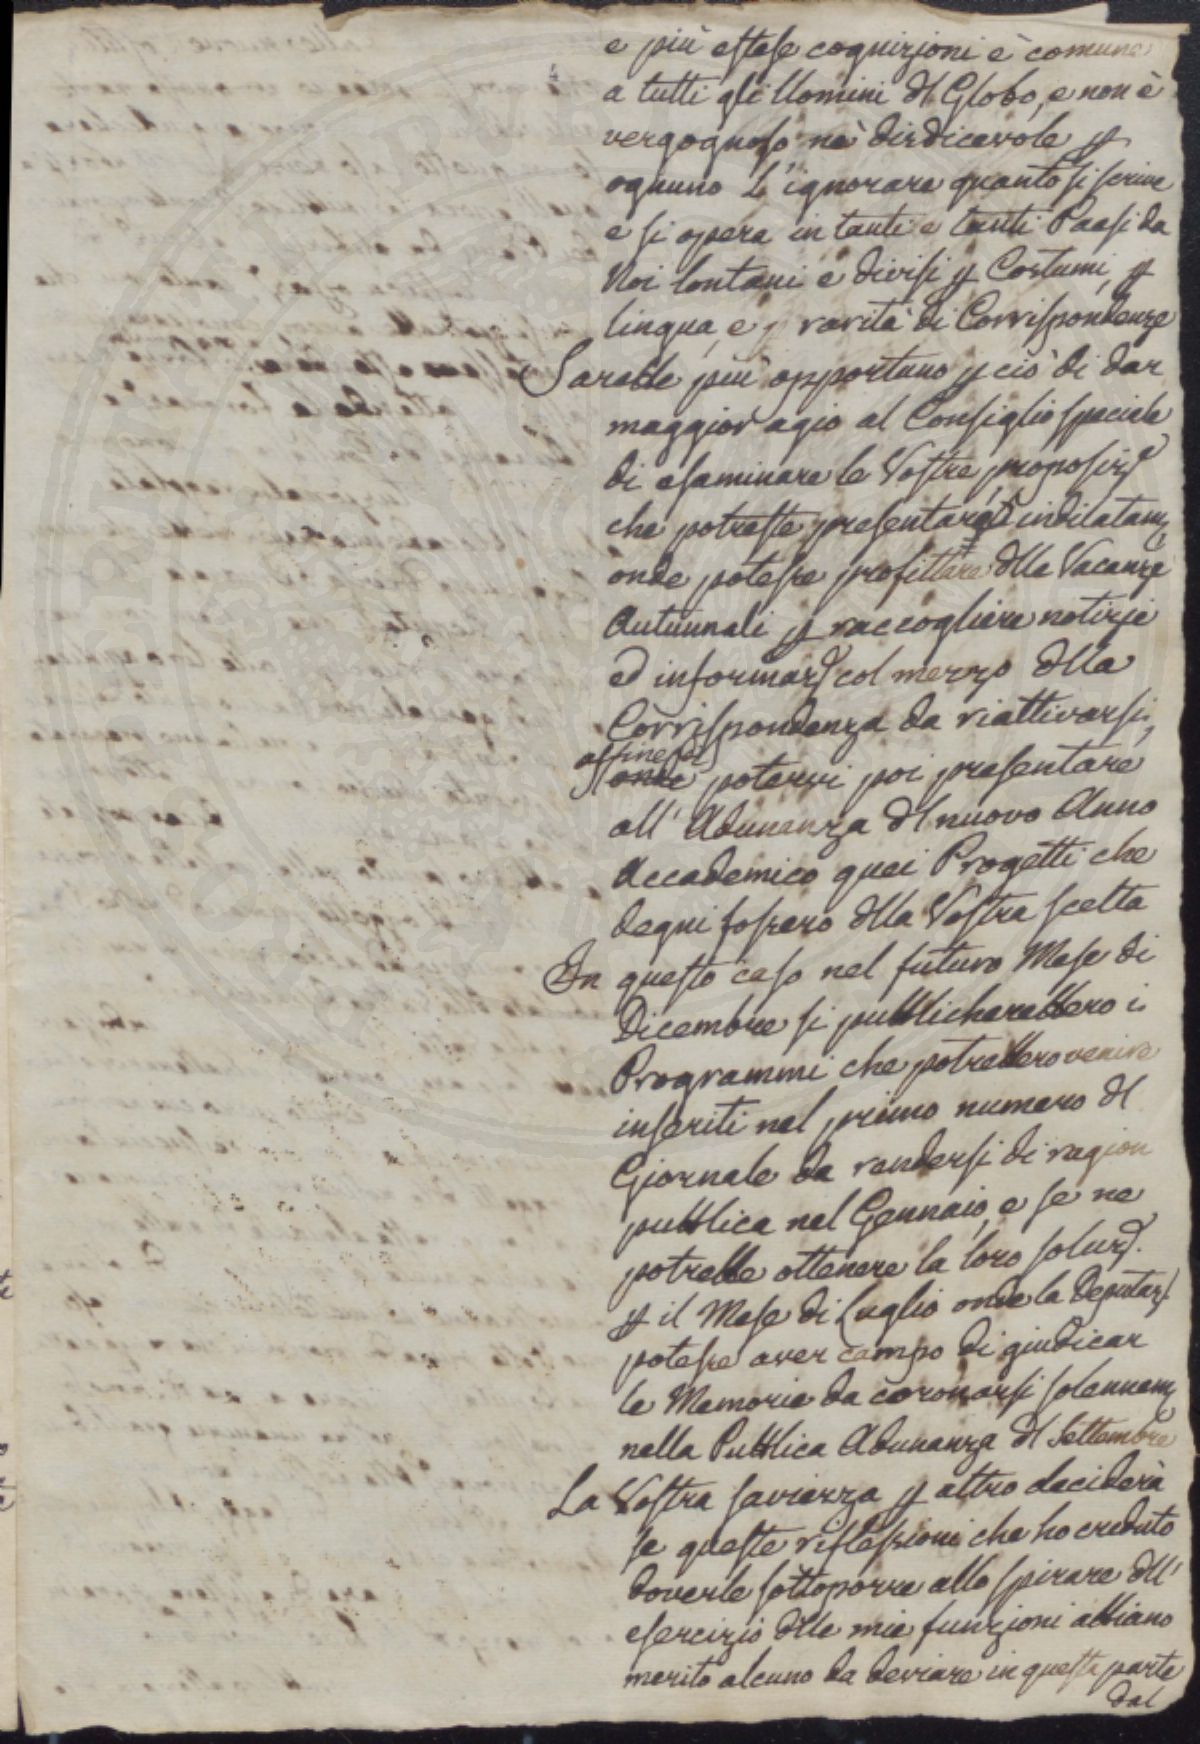 e più estese cognizioni è comune
a tutti gli Uomini dl Globo, e non è
vergognoso nè disdicevole p
ognuno l'ignorare quanto si scrive
e si opera in tanti e tanti Paesi da
Noi lontani e divisi p Costumi, p
lingua, e p rarità di Corrispondenze
Sarebbe più opportuno p ciò di dar
maggior agio al Consiglio speciale
di esaminare le Vostre proposiz.e
che potreste presentargli indilatam.
onde potesse profittare dlle Vacanze
Autunnali p raccogliere notizie
ed informaz. col mezzo dlla
Corrispondenza da riattivarsi,
affine di
onde potervi poi presentare
all'Adunanza dl nuovo Anno
Accademico quei Progetti che
degni fossero dlla Vostra scelta
In questo caso nel futuro Mese di
Dicembre si pubblicharebbero i
Programmi che potrebbero venire
inseriti nel primo numero dl
Giornale da rendersi di ragion
pubblica nel Gennaio, e se ne
potrebbe ottenere la loro soluz.
p il Mese di Luglio onde la Deputaz.
potesse aver campo di giudicar
le Memorie da coronarsi solennem.
nella Pubblica Adunanza dl Settembre
La Vostra saviezza p altro deciderà
se queste riflessioni che ho creduto
doverle sottoporre allo spirare dll'
esercizio dlle mie funzioni abbiano
merito alcuno da deviare in questa parte
dal